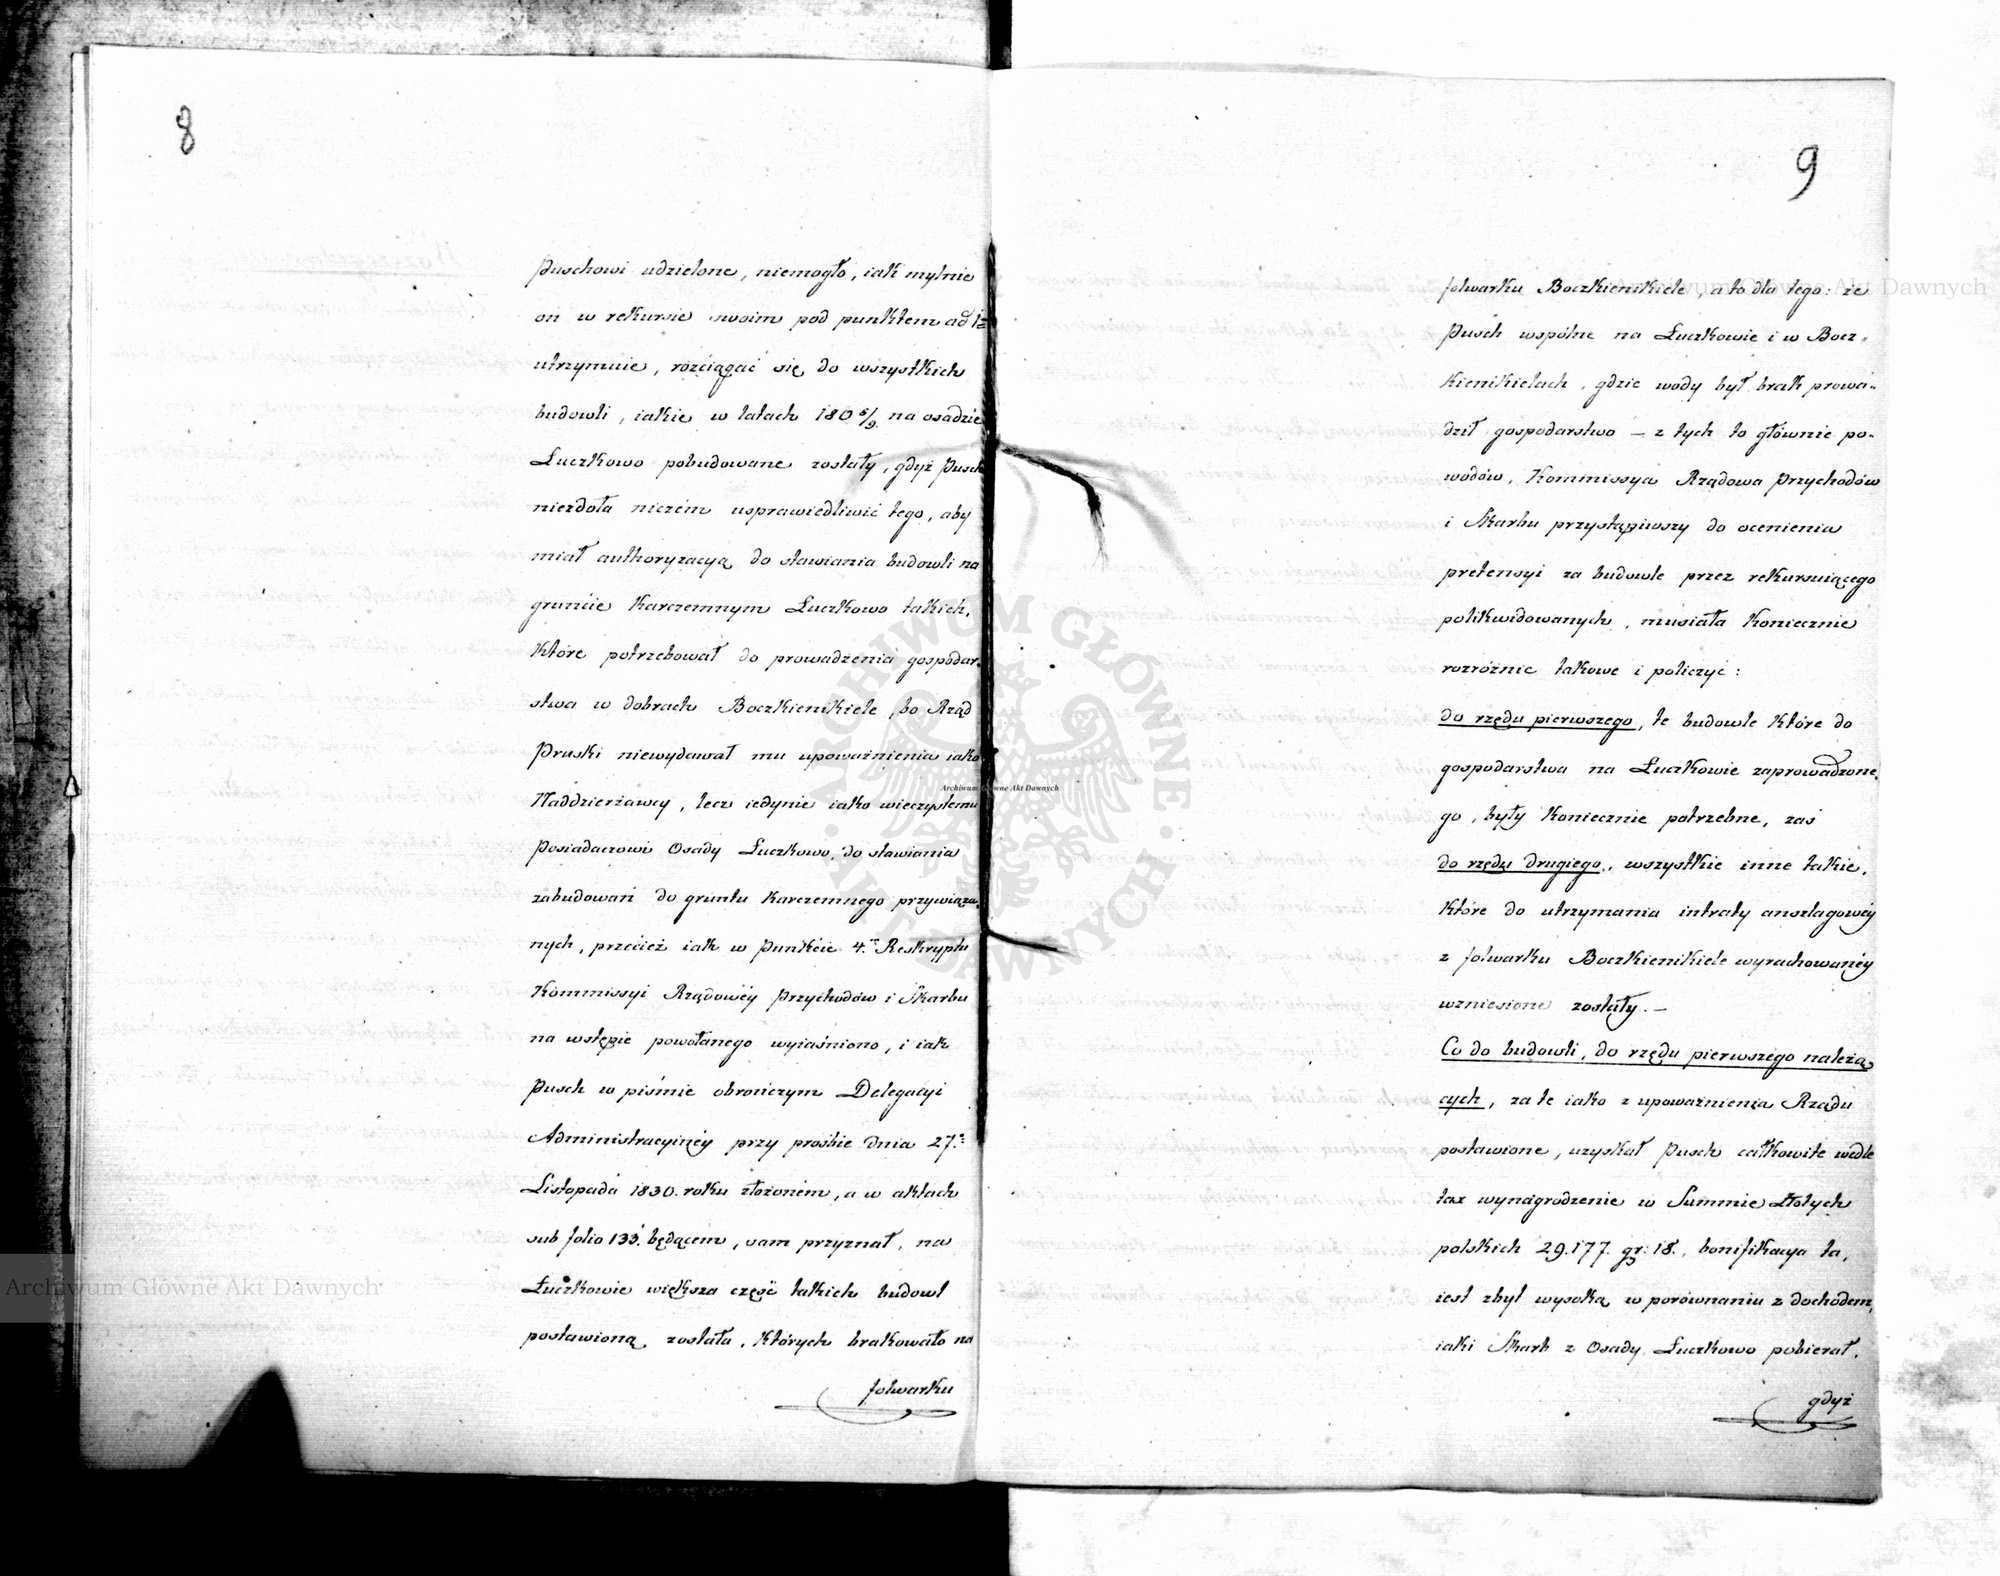 8
Puschowi udzielone, niemogło, iak mylnie
on w rekursie swoim pod punktem ad 1=
utrzymuie, rozciągać się do wszystkich
budowli, iakie w latach 180 5/9. na osadzie
Łuczkowo pobudowane zostały, gdyż Pusch
niezdoła niczém usprawiedliwić tego, aby
miał authoryzacyą do stawiania budowli na
gruncie Karczemnym Łuczkowo takich,
które potrzebował do prowadzenia gospodar-
stwa w dobrach Boczkienikiele, bo Rząd
Pruski niewydawał mu upoważnienia iako
Naddzierżawcy, lecz iedynie iako wieczystemu
Posiadaczowi Osady Łuczkowo, do stawiania
zabudowań do gruntu Karczemnego przywiąza-
nych, przecież iak w Punkcie 4. Reskryptu
Kommissyi Rządowéy Przychodów i Skarbu
na wstępie powołanego wyiaśniono, i iak
Pusch w piśmie obrończym Delegacyi
Administracyinéy przy prośbie dnia 27.
Listopada 1830. roku złożoném, a w aktach
sub folio 133. będącem, sam przyznał, na
Łuczkowie większa część takich budowl
postawioną została, których brakowało na
folwarku
9
folwarku Boczkienikiele, a to dla tego: że
Pusch wspólne na Łuczkowie i w Bocz-
kienikielach, gdzie wody był brak prowa-
dził gospodarstwo — z tych to głównie po-
wodów, Kommissya Rządowa Przychodów
i Skarbu przystąpiwszy do ocenienia
pretensyi za budowle przez rekursuiącego
polikwidowanych, musiała koniecznie
rozróżnić takowe i policzyć:
do rzędu pierwszego, te budowle które do
gospodarstwa na Łuczkowie zaprowadzone-
go, były koniecznie potrzebne, zaś
do rzędu drugiego, wszystkie inne takie,
które do utrzymania intraty anszlagowéy
z folwarku Boczkienikiele wyrachowanéy
wzniesione zostały. —
Co do budowli, do rzędu pierwszego należą-
cych, za te iako z upoważnienia Rządu
postawione, uzyskał Pusch całkowite wedle
tax wynagrodzenie w Summie Złotych
polskich 29.177. gr: 18., bonifikacya ta,
iest zbyt wysoką w porównaniu z dochodem,
iaki Skarb z Osady Łuczkowo pobierał,
gdyż
Archiwum Główne Akt Dawnych
Archiwum Główne Akt Dawnych
Archiwum Główne Akt Dawnych
ARCHIWUM GŁÓWNE AKT DAWNYCH